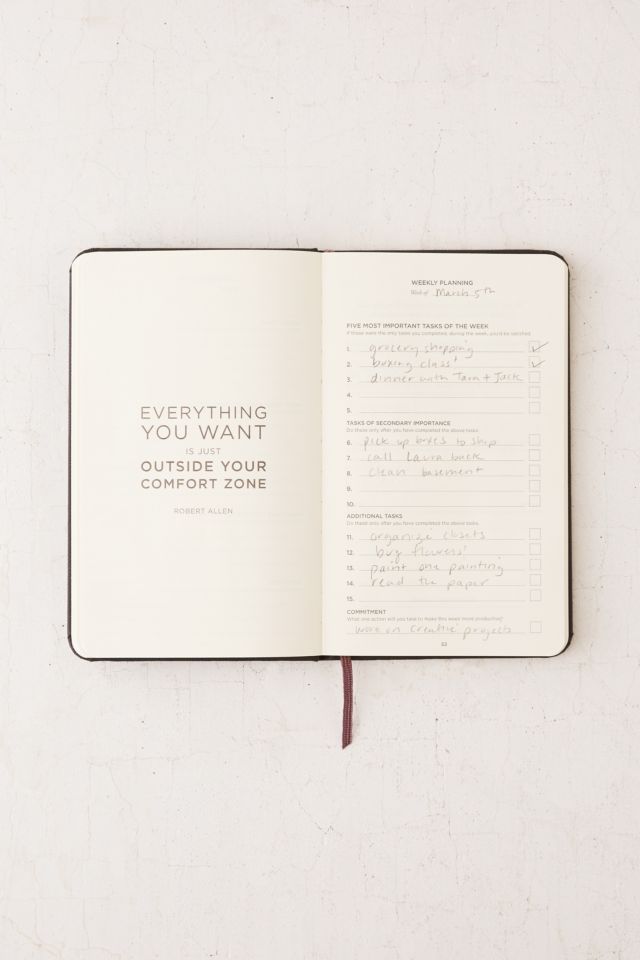 EVERYTHING
YOU WANT
IS JUST
OUTSIDE YOUR
COMFORT ZONE
ROBERT ALLEN
WEEKLY PLANNING
Week of March 5th
FIVE MOST IMPORTANT TASKS OF THE WEEK
If these were the only tasks you completed during the week, you'd be satisfied
1. grocery shopping
2. boxing class!
3. dinner with Tara + Jack
4.
5.
TASKS OF SECONDARY IMPORTANCE
Do these only after you have completed the above tasks
6. pick up boxes to ship
7. call Laura back
8. clean basement
9.
10.
ADDITIONAL TASKS
Do these only after you have completed the above tasks.
11. organize closets
12. buy flowers!
13. paint one painting
14. read the paper
15.
COMMITMENT
What one action will you take to make this week more productive?
work on creative projects